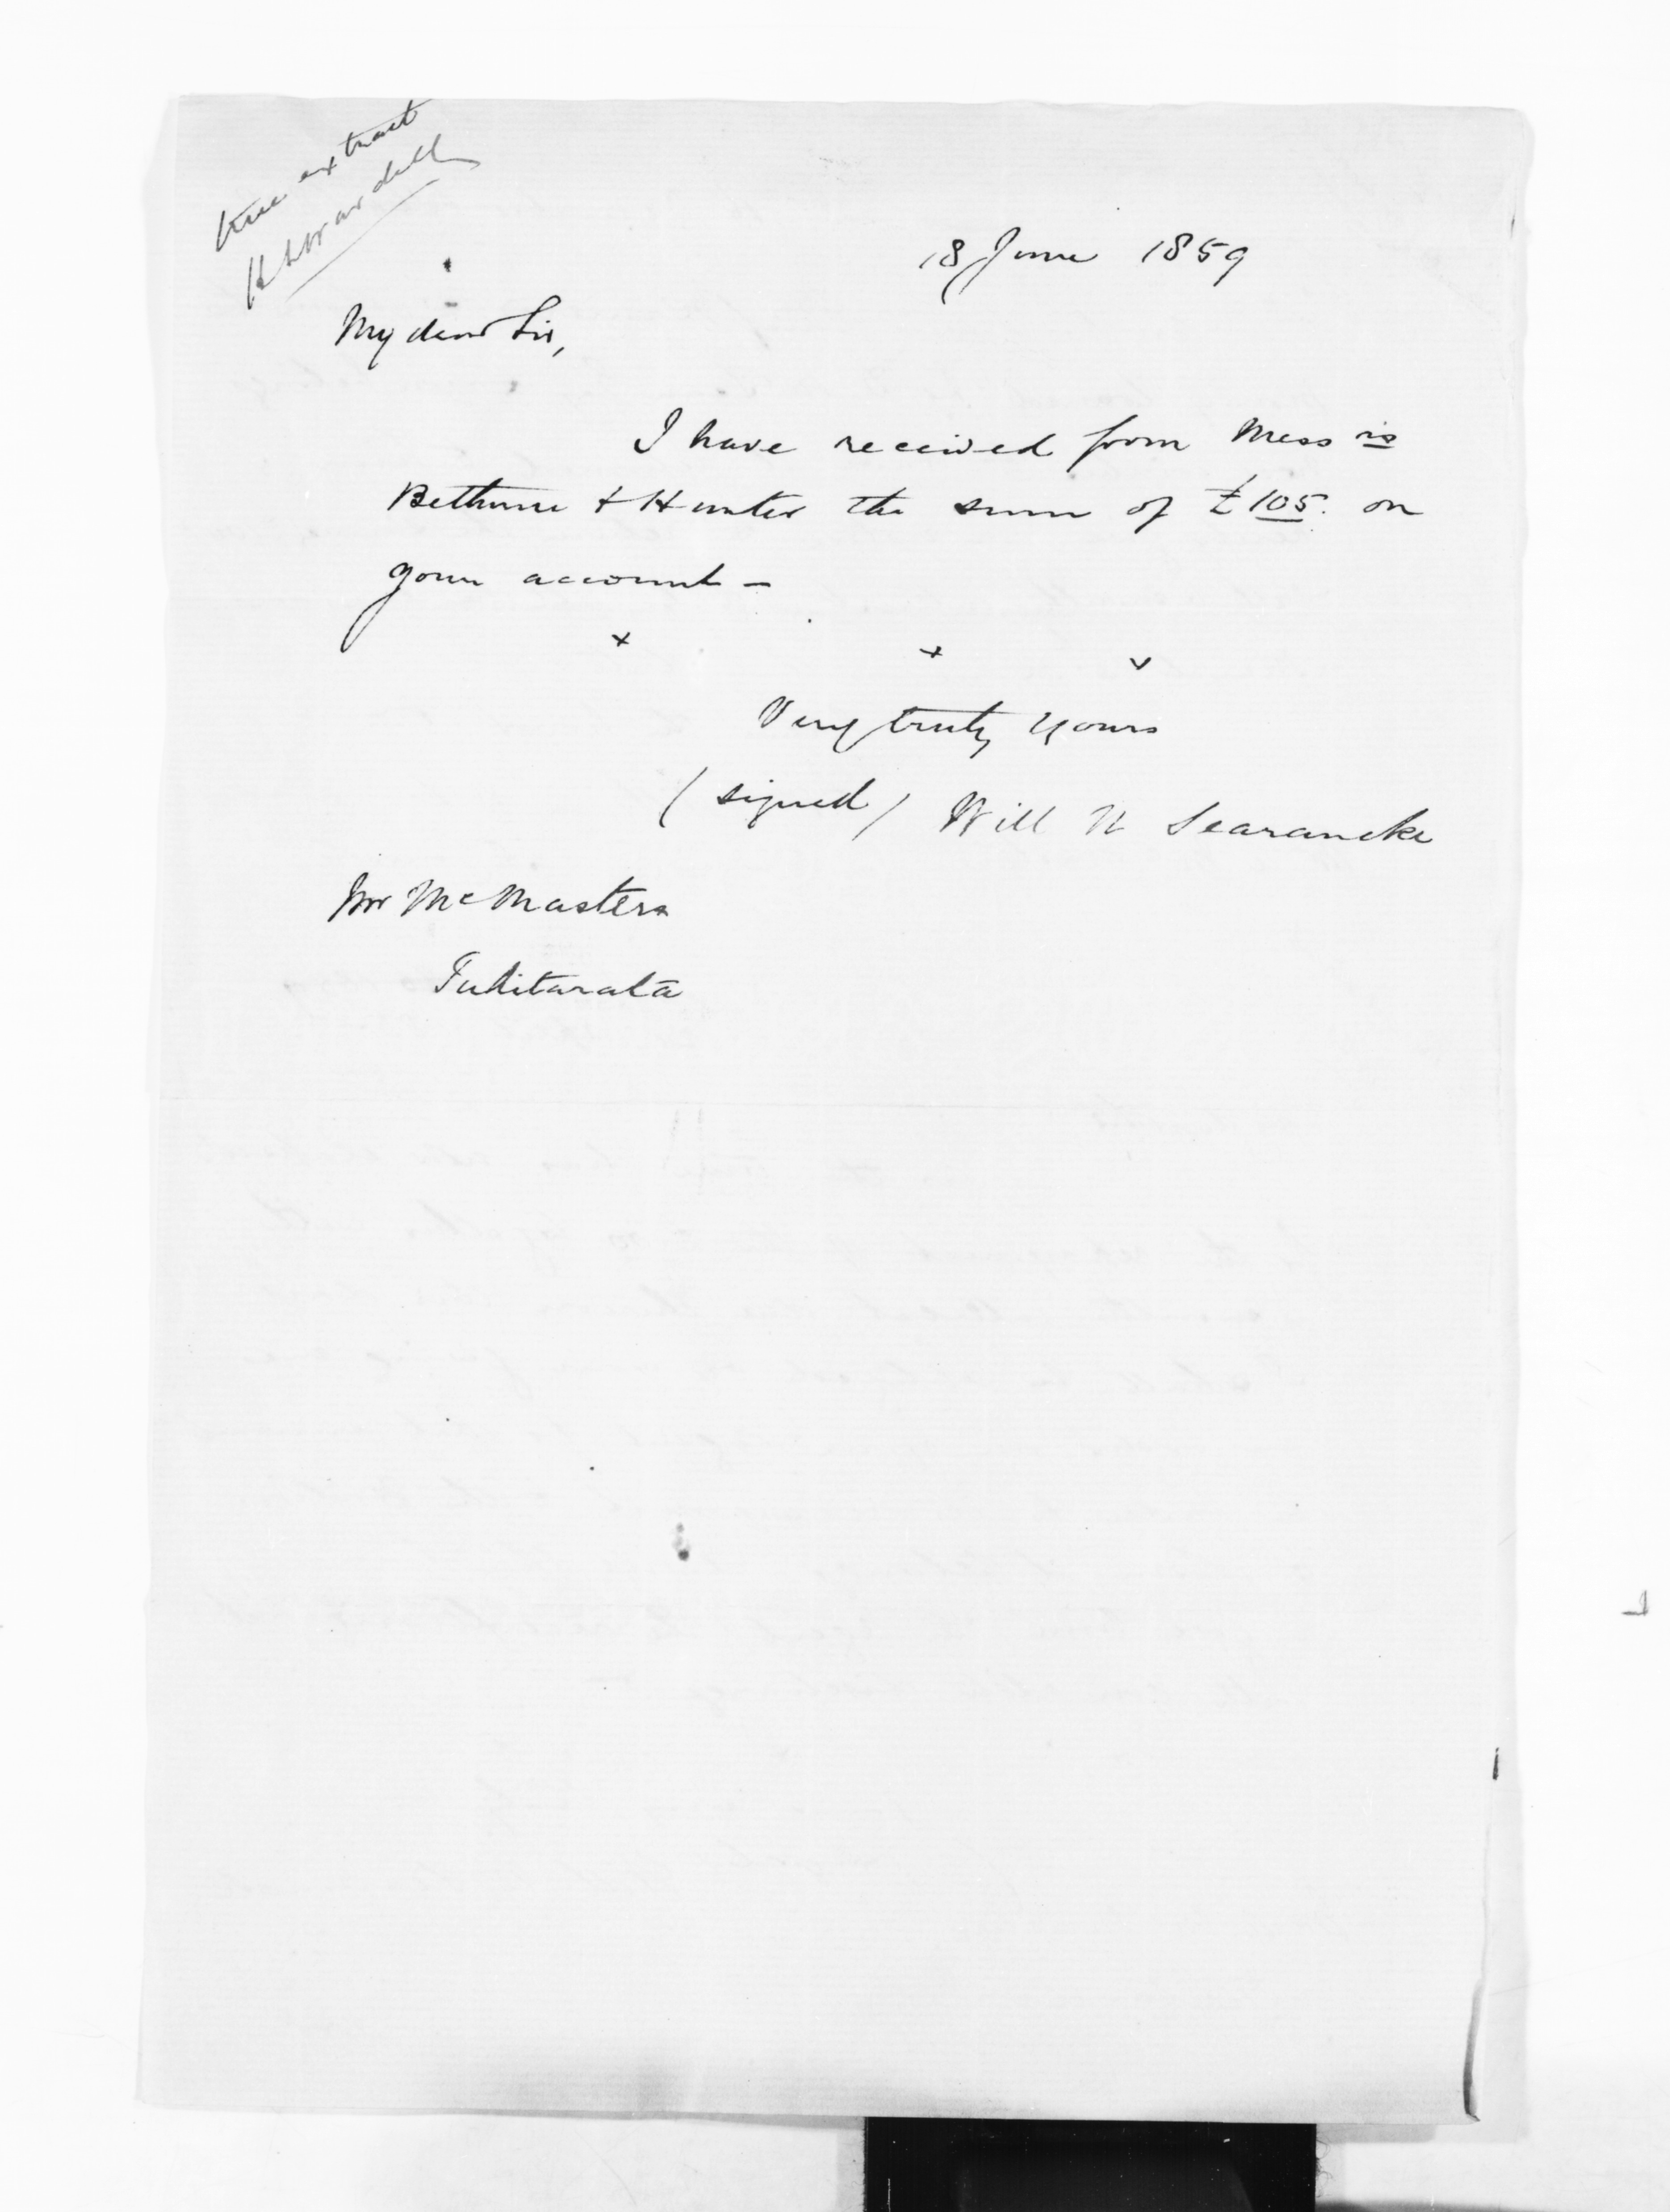 true extract
H S Wardell
18 June 1859
My dear Sir,
I have received from Mess rs
Bethune & Hunter the sum of £105. on
your account —
x x x
Very truly yours
(signed) Will N Searancke
Mr McMasters
Tuhitarata